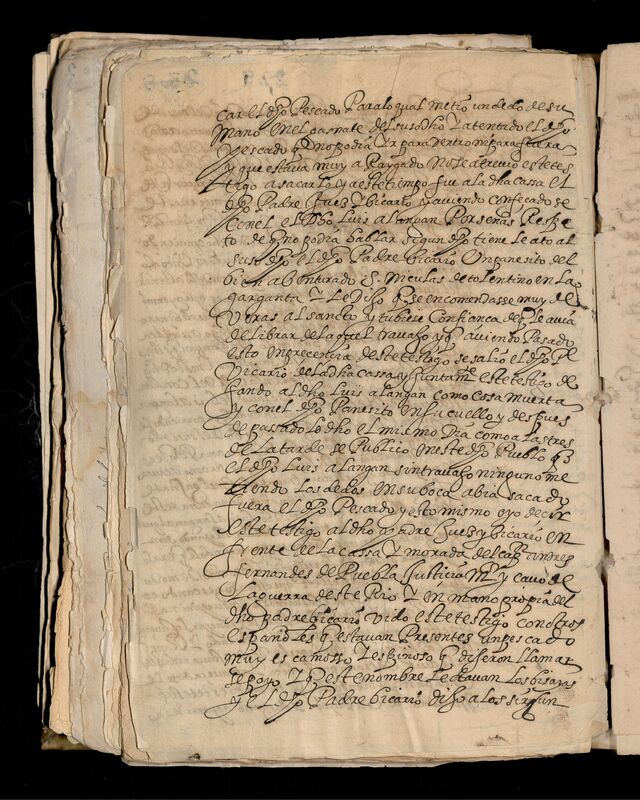 car el dho Pescado Paralo qual metio un dedo de su
mano en el gasnate del susodho Y atentado el dho
pescado q no podia Yr para dentro ni para fuera
y que estava muy a Raygado no se atrevio este tes
tigo a sacarlo y a este tiempo fue a la dha cassa el
dho Padre Juez y bicario y aviendo confecado se
con el el dho Luis alangan Por señas Respe
to de q no podia hablar sigun dho tiene le ato al
susodho el dho Padre bicario Un panesito del
bien abenturado S. niculas de tolentino en la
garganta Y le dixo q se encomendasse muy de
veras al sancto y tubiese Confiança q le avia
de librar de la quel travaxo y q aviendo Pasado
esto en precencia deste testigo se salio el dho Pe
Vicario de la dha cassa y juntamte este testigo de
xando al dho Luis alangan como cossa muerta
y con el dho Panesito en su cuello y despues
de passado lo dho el mismo dia como a las tres
de la tarde se Publico en este dho Pueblo q
el dho Luis alangan sin travaxo ninguno me
tiendo los dedos en su boca abia sacado
fuera el dho Pescado y esto mismo oyo decir
este testigo al dho padre Juez y bicario en
frente de la cassa Y morada del capn andres
fernandes de Puebla Justicia Mr y cavo de
la guerra deste Rio Y en mano propia del
dho padre bicario vido este testigo con otros
españoles q estavan Presentes un pescado
muy escamosso Y espinoso q dixeron llamar
se poyo Y q este nombre le davan los bisayas
y el dho Padre bicario dixo a los sirgun